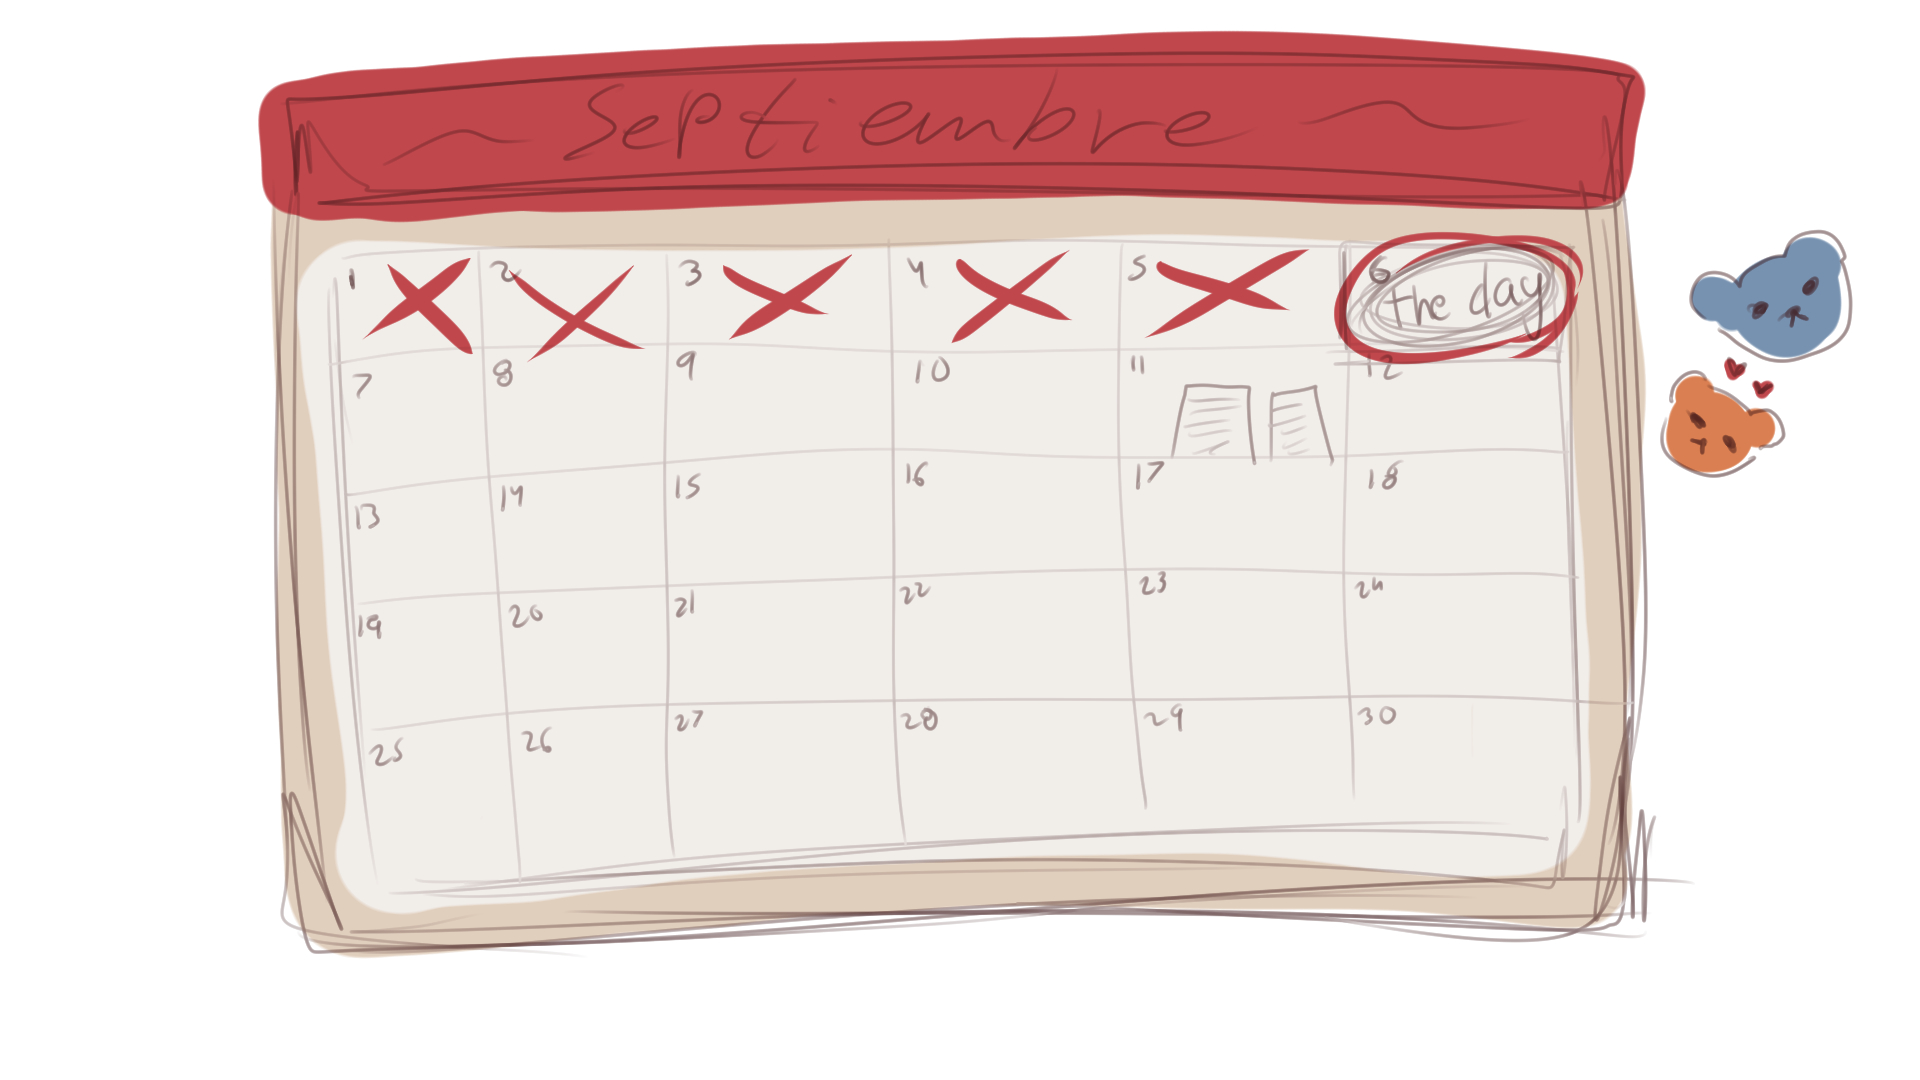 ~ Septiembre ~
1 2 3 4 5 6 the day
7 8 9 10 11 12
13 14 15 16 17 18
19 20 21 22 23 24
25 26 27 28 29 30